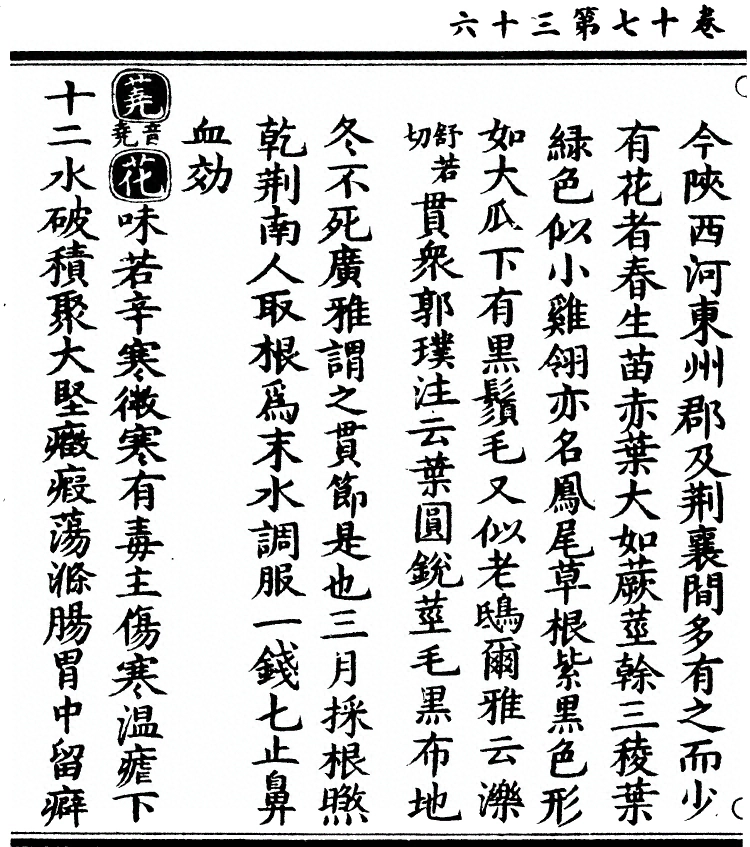 卷十七第三十六
今陝西河東州郡及荆襄間多有之而少
有花者春生苗赤葉大如蕨莖幹三稜葉
綠色似小雞翎亦名鳳尾草根紫黑色形
如大瓜下有黑鬚毛又似老鴟爾雅云濼
舒若切貫衆郭璞注云葉圓銳莖毛黑布地
冬不死廣雅謂之貫節是也三月採根㬠
乾荆南人取根爲末水調服一錢七止鼻
血効
蕘音堯花味若辛寒微寒有毒主傷寒温瘧下
十二水破積聚大堅癥瘕蕩滌腸胃中留癖